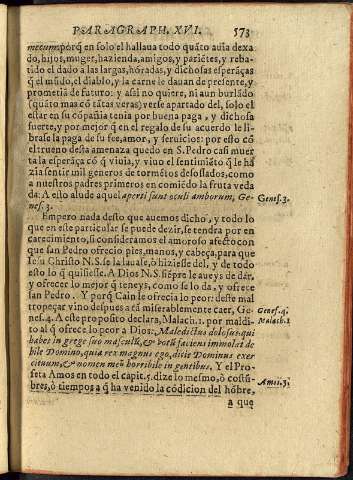 PARAGRAPH. XVI. 573
mecum: porq̃ en solo el hallaua todo quãto auia dexa
do, hijos, muger, hazienda, amigos, y pariẽtes, y reba-
tido el dado a las largas, hõradas, y dichosas esperãças
q̃ el mũdo, el diablo, y la carne le dauan de presente, y
prometia de futuro: y asi no quiere, ni aun burlãdo
(quãto mas cõ tãtas veras) verse apartado del, solo el
estar en su cõpañia tenia por buena paga, y dichosa
suerte, y por mejor q̃ en el regalo de su acuerdo le li-
brase la paga de su fee, amor, y seruicios: por esto cõ
el trueno desta amenaza quedo en S. Pedro casi muer
ta la esperãça cõ q̃ viuia, y viuo el sentimiẽto q̃ le ha
zia sentir mil generos de tormẽtos desollados, como
a nuestros padres primeros en comiẽdo la fruta veda
da. A esto alude aquel aperti sunt oculi amborum, Ge-
nes. 3.
Genes. 3.
Empero nada desto que auemos dicho, y todo lo
que en este particular se puede dezir, se tendra por en
carecimiento, si consideramos el amoroso afecto con
que san Pedro ofrecio pies, manos, y cabeça, para que
Iesu Christo N. S. se la lauase, o hiziesse del, y de todo
esto lo q̃ quisiesse. A Dios N. S. siẽpre le aueys de dar,
y ofrecer lo mejor q̃ teneys, como se lo da, y ofrece
san Pedro. Y porq̃ Cain le ofrecia lo peor: deste mal
tropeçar vino despues a tã miserablemente caer, Ge-
nes. 4. A este proposito declara, Malach. 1. por maldi-
to al q̃ ofrece lo peor a Dios: Maledictus dolosus, qui
habet in grege suo masculũ, & votũ faciens immolat de
bile Domino, quia rex magnus ego, dicit Dominus exer
cituum, & nomen meũ horribile in gentibus. Y el Pro-
feta Amos en todo el capit. 5. dize lo mesmo, ò costũ-
bres, ò tiempos a q̃ ha venido la codicion del hõbre,
Genes. 4.
Malach. 1
Amos. 5.
a que